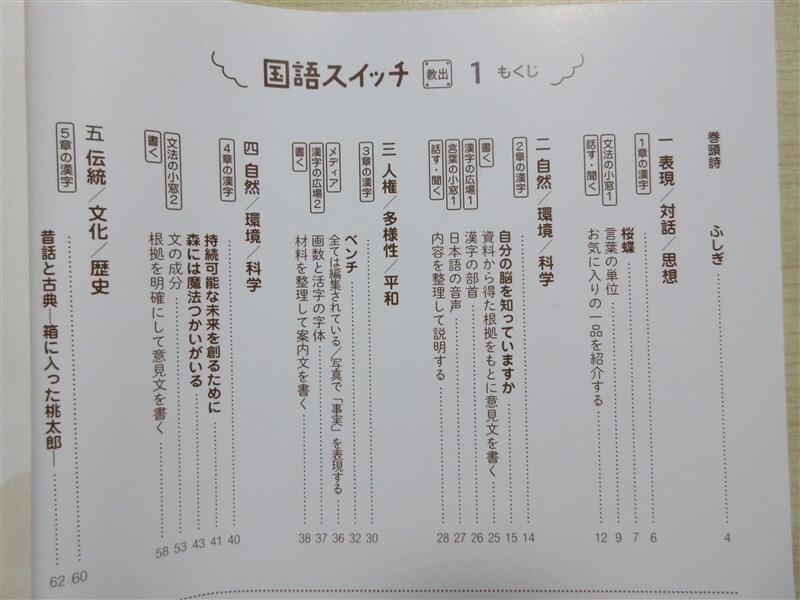 国語スイッチ 教出 1 もくじ
巻頭詩 ふしぎ 4
一 表現/対話/思想
1章の漢字 6
桜蝶 7
文法の小窓1 言葉の単位 9
話す・聞く お気に入りの一品を紹介する 12
二 自然/環境/科学
2章の漢字 14
自分の脳を知っていますか 15
書く 資料から得た根拠をもとに意見文を書く 25
漢字の広場1 漢字の部首 26
言葉の小窓1 日本語の音声 27
話す・聞く 内容を整理して説明する 28
三 人権/多様性/平和
3章の漢字 30
ベンチ 32
メディア 全ては編集されている/写真で「事実」を表現する 36
漢字の広場2 画数と活字の字体 37
書く 材料を整理して案内文を書く 38
四 自然/環境/科学
4章の漢字 40
持続可能な未来を創るために 41
森には魔法つかいがいる 43
文法の小窓2 文の成分 53
書く 根拠を明確にして意見文を書く 58
五 伝統/文化/歴史
5章の漢字 60
昔話と古典―箱に入った桃太郎― 62